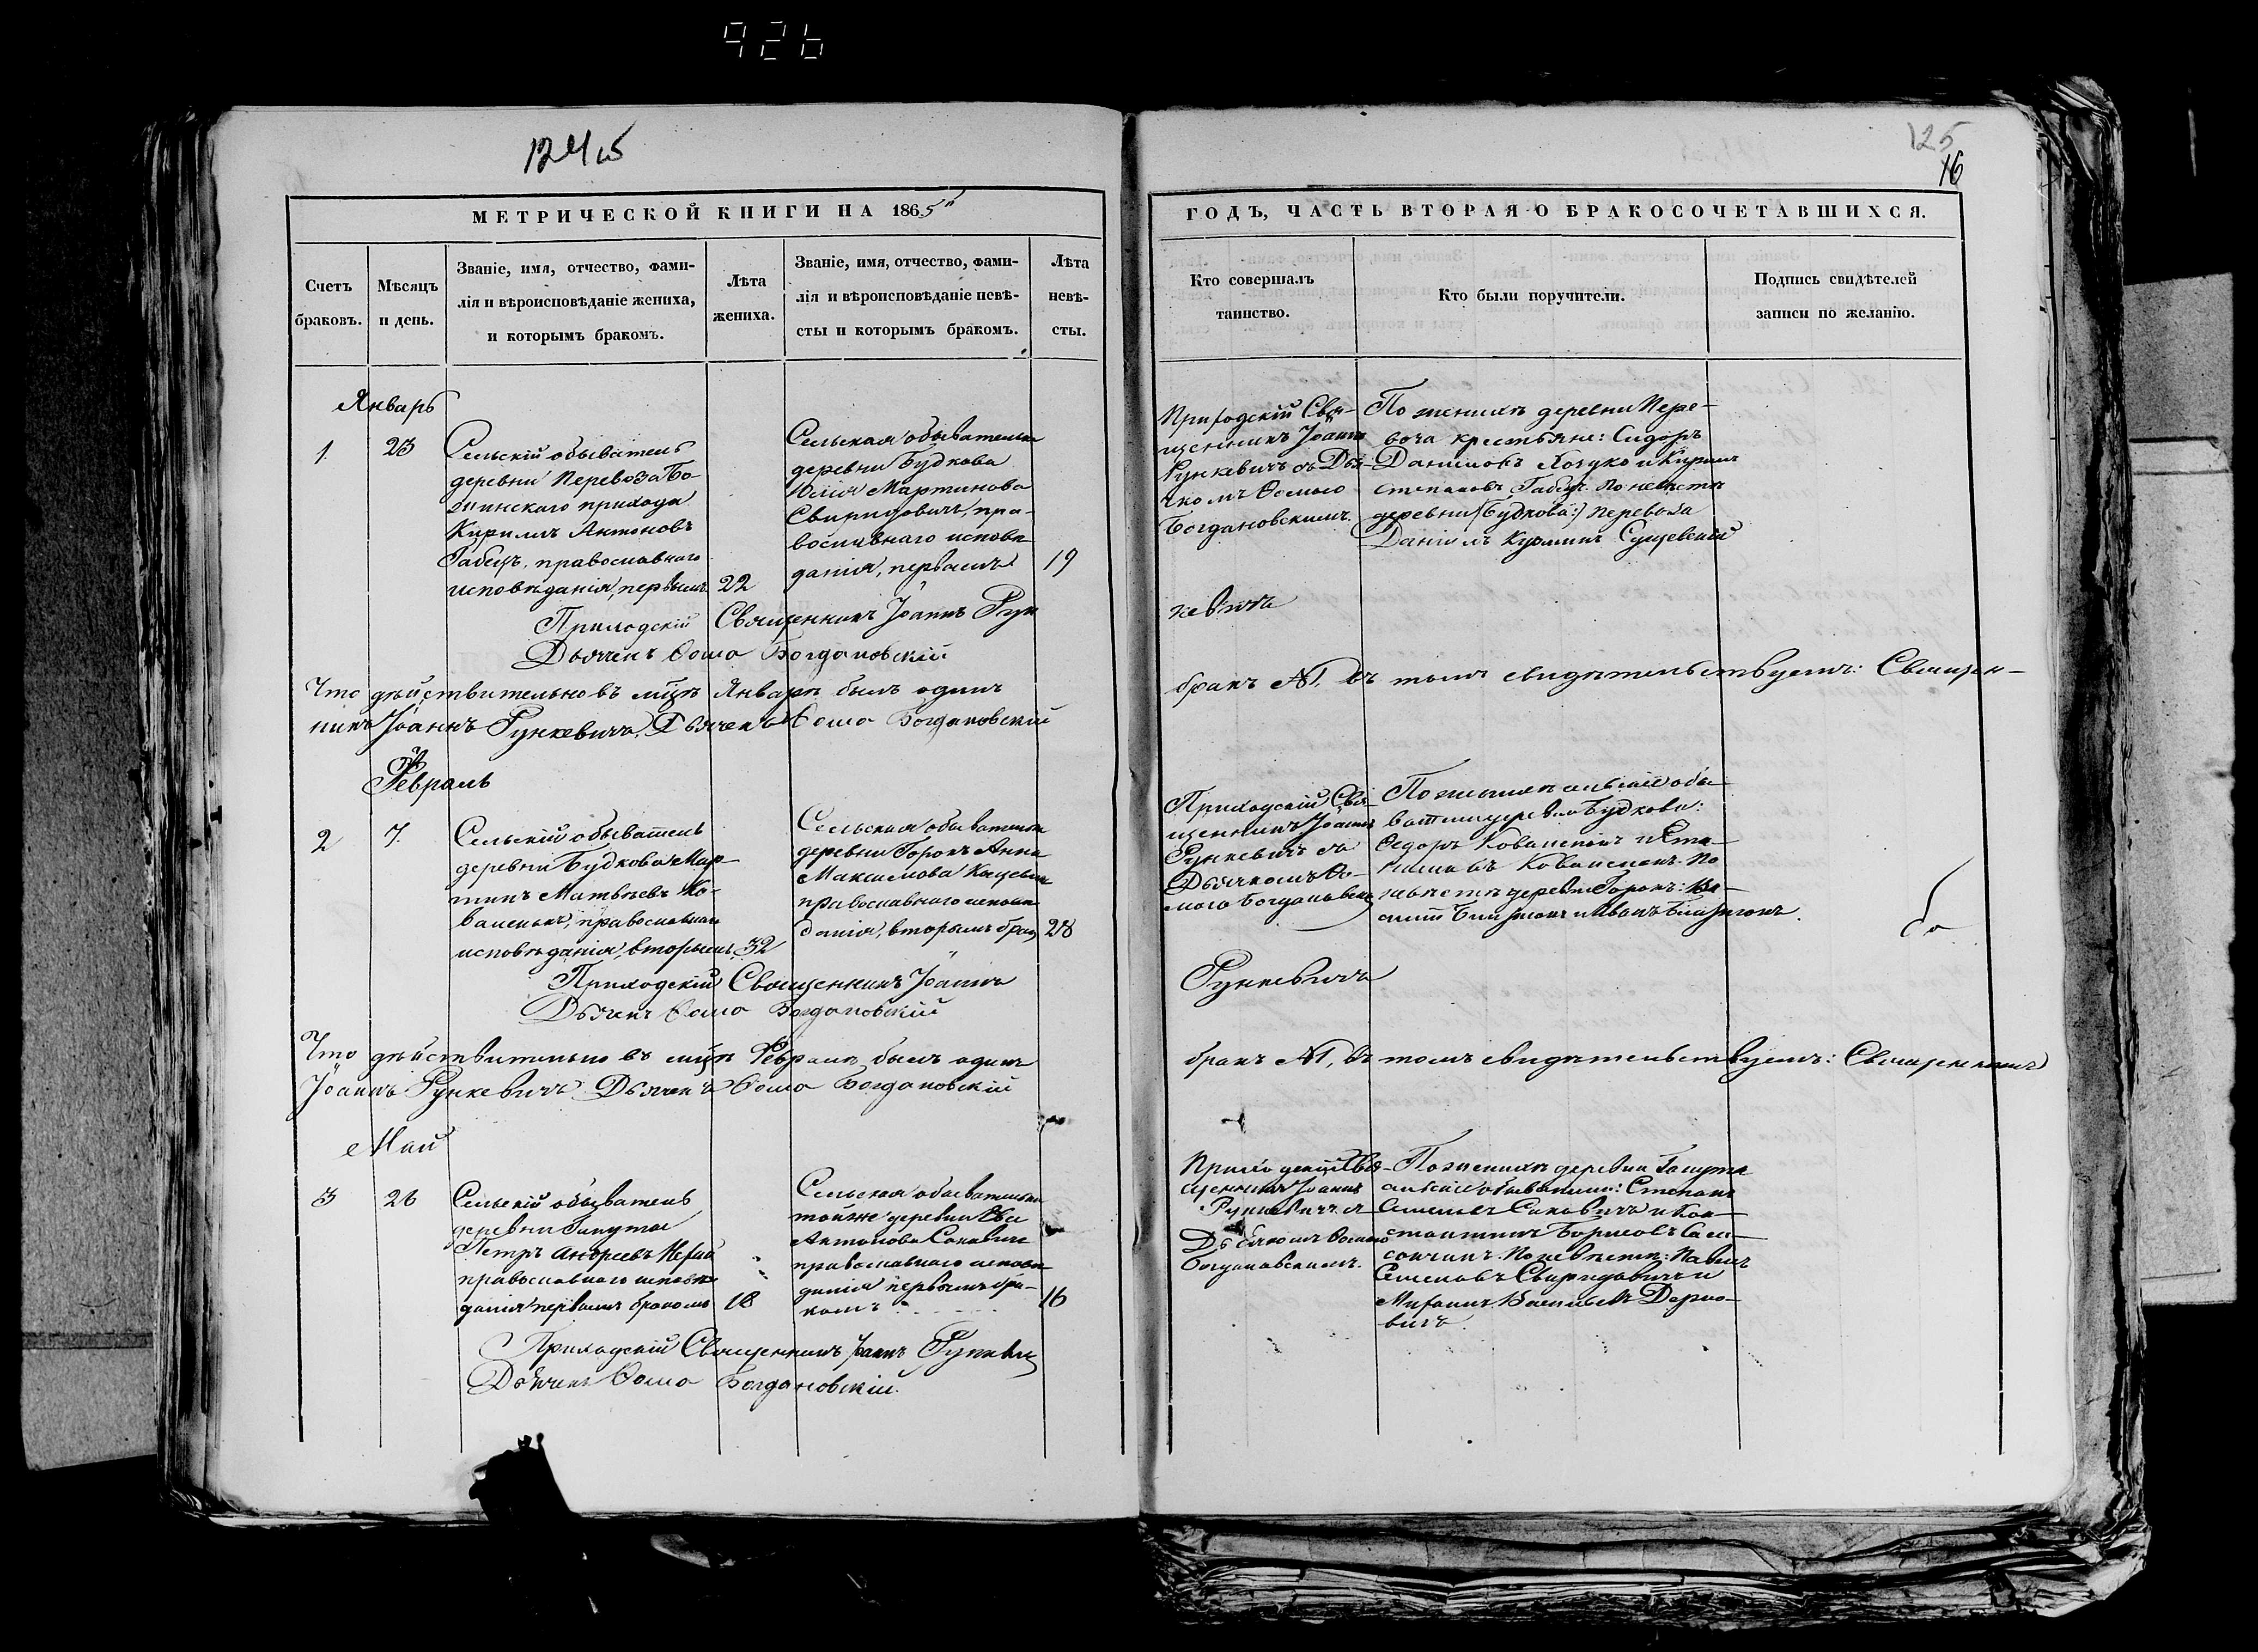 926
124 об
125
16
МЕТРИЧЕСКОЙ КНИГИ НА 1865й
Счетъ
браковъ.
Мѣсяцъ
и день.
Званіе, имя, отчество, фами-
лія и вѣроисповѣданіе жениха,
и которымъ бракомъ.
Лѣта
жениха.
Званіе, имя, отчество, фами-
лія и вѣроисповѣданіе невѣ-
сты и которымъ бракомъ.
Лѣта
невѣ-
сты.
ГОДЪ, ЧАСТЬ ВТОРАЯ О БРАКОСОЧЕТАВШИХСЯ.
Кто совершалъ
таинство.
Кто были поручители.
Подпись свидѣтелей
записи по желанію.
Январь
1
23
Сельскій обыватель
деревни Перевоза Бо-
гинскаго прихода
Кирилъ Антоновъ
Габецъ, православнаго
исповѣданія, первымъ
22
Сельская обывателька
деревни Будкова
Юлія Мартинова
Свиридовичъ, пра-
вославнаго исповѣ-
данія, первымъ
19
Приходскій Свя-
щенникъ Іоаннъ
Рункевичъ съ Дья-
чкомъ Ѳомою
Богдановскимъ.
По женихѣ деревни Пере-
воза крестьяне: Сидоръ
Даниловъ и Кирилъ
Степановъ Габецъ. По невѣстѣ
деревни (Будкова:) Перевоза
Даніилъ Кузминъ
Приходскій Священникъ Іоаннъ Рун
кевичъ
Дьячекъ Ѳома Богдановскій
Что дѣйствительно въ мцѣ Январѣ былъ одинъ
бракъ №1, въ томъ свидѣтельствуемъ: Священ-
никъ Іоаннъ Рункевичъ, Дьячекъ Ѳома Богдановскій
Февраль
2
7.
Сельскій обыватель
деревни Будкова Мар-
тинъ Матвѣевъ Ко-
валенокъ, православнаго
исповѣданія, вторымъ
32
Сельская обывателька
деревни Горокъ Анна
Максимова
православнаго исповѣ
данія, вторымъ брак
28
Приходскій Свя-
щенникъ Іоаннъ
Рункевичъ съ
Дьячкомъ Ѳо-
мою Богдановск
По женихѣ сельскіе обы-
ватели деревни Будкова:
Ѳедоръ Коваленокъ и
Коваленокъ. По
невѣстѣ деревни Горокъ:
и Иванъ
Приходскій Священникъ Іоаннъ
Рункевичъ
Дьячекъ Ѳома Богдановскій
Что дѣйствительно въ мцѣ Февралѣ былъ одинъ
бракъ №1, въ томъ свидѣтельствуемъ: Священникъ
Іоаннъ Рункевичъ. Дьячекъ Ѳома Богдановскій
Май
3
26
Сельскій обыватель
деревни
Петръ Андреевъ
православнаго исповѣ
данія первымъ бракомъ
18
Сельская обывателька
той же деревни Ева
Антонова Саковичъ
православнаго исповѣ
данія первымъ бра-
комъ
16
Приходскій Свя-
щенникъ Іоаннъ
Рункевичъ съ
Дьячкомъ Ѳомою
Богдановскимъ.
По женихѣ деревни
сельскіе обыватели: Степанъ
Семеновъ Саковичъ и Кон-
стантинъ Борисовъ
По невѣстѣ: Павелъ
Семеновъ Свиридовичъ и
Михаилъ Васильевъ
Приходскій Священникъ Іоаннъ Рункевич
Дьячекъ Ѳома Богдановскій.